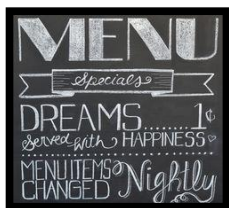 MENU
Specials
DREAMS......1¢
Served with HAPPINESS
MENU ITEMS
CHANGED Nightly